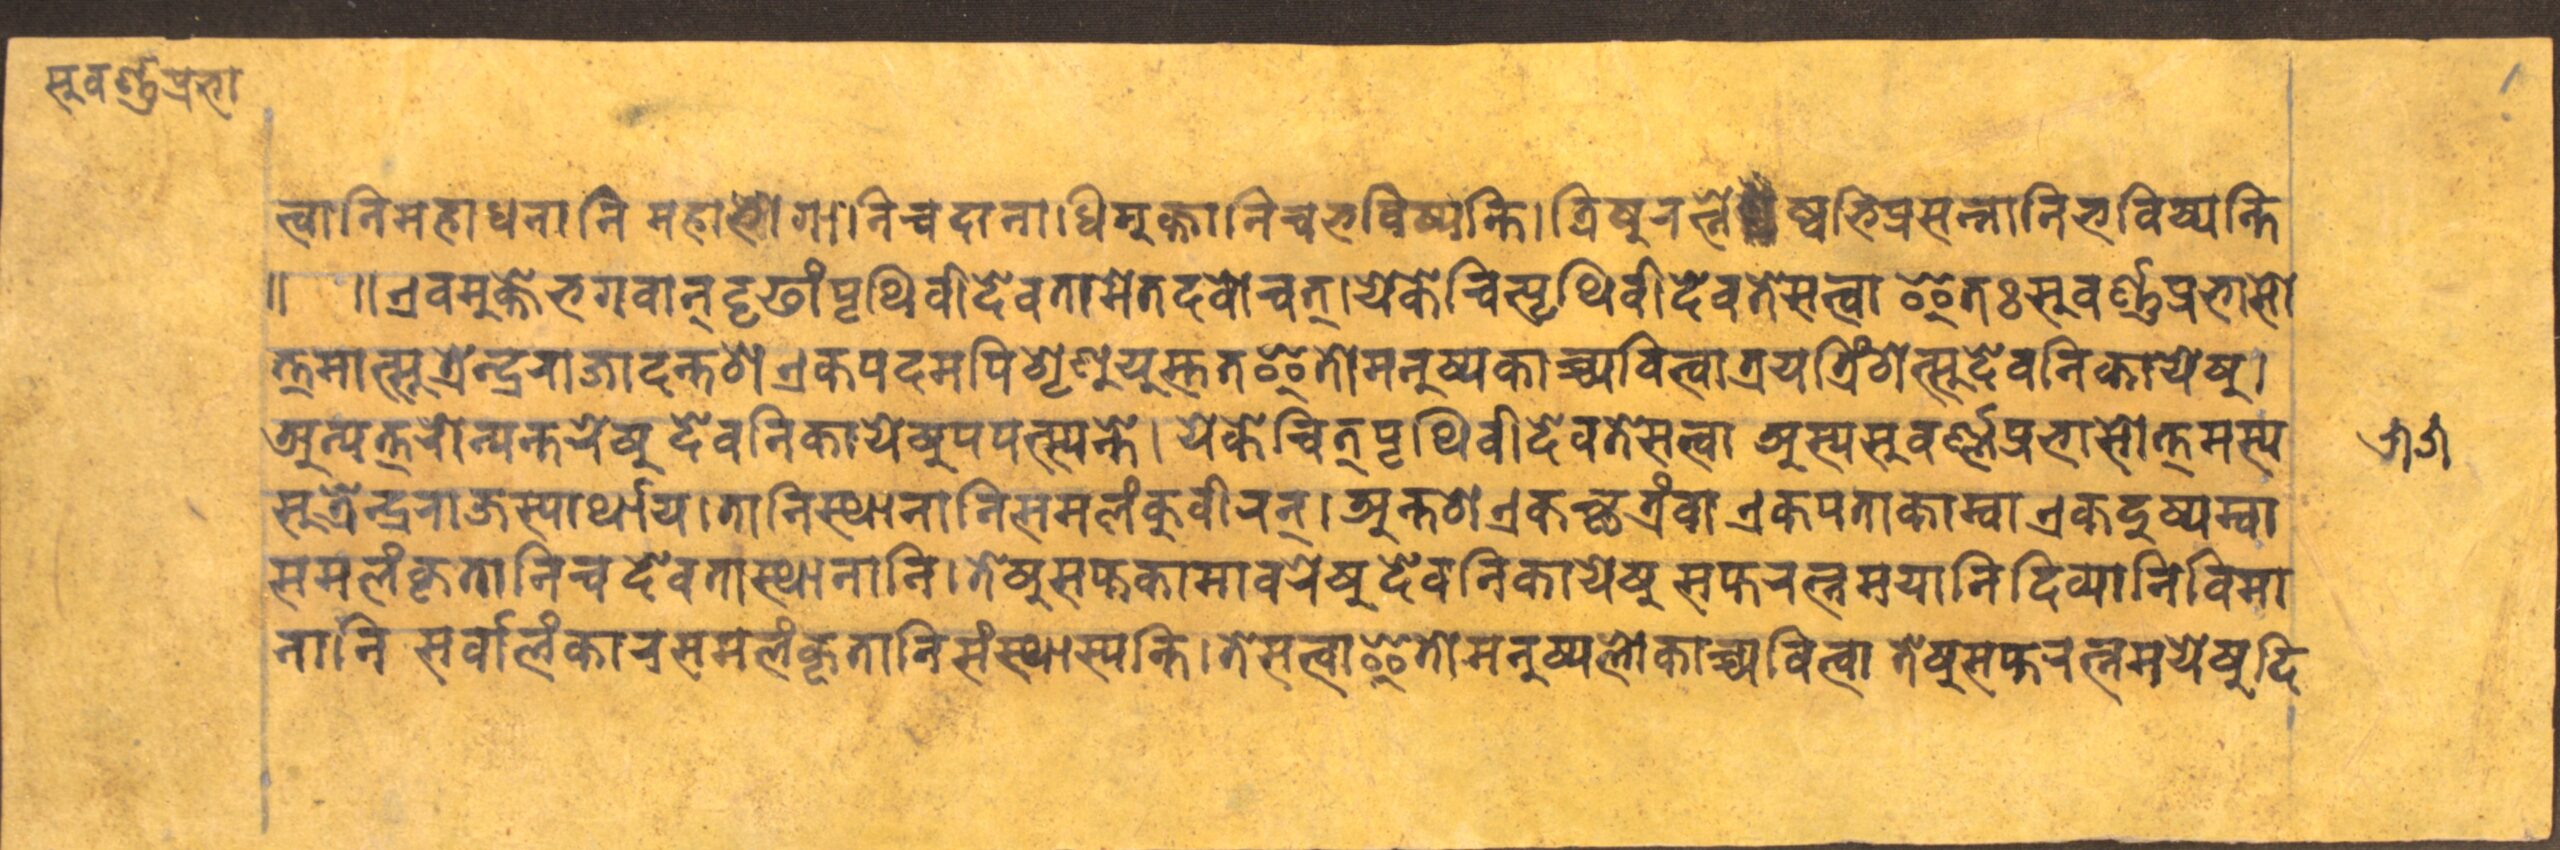 सुवर्ण्णप्रभा
त्वानिमहाधनानि महाभोगानिचदानाधिमुक्तानिचभविष्यन्ति। त्रिषुरत्नेष्वभिप्रसन्नानिभविष्यन्ति
॥ ॥ एवमुक्तेभगवान् दृढांपृथिवीदेवतामेतदवोचत्। येकेचित्पृथिवीदेवतेसत्त्वा इतःसुवर्ण्णप्रभासो
त्तमात्सूत्रेन्द्रराजादन्तश एकपदमपिशृणुयुस्तत इतोमनुष्यकाच्च्यवित्वात्रयत्रिंशेत्सुदेवनिकायेषु।
अन्यतरोन्यन्तरेषु देवनिकायेषुपपत्स्यन्ते। येकेचित् पृथिवीदेवतेसत्त्वा अस्यसुवर्ण्णप्रभासोत्तमस्य
सूत्रेन्द्रराजस्यार्थाय। तानिस्थानानिसमलंकुर्वीरन्। अन्तश एकच्छत्रंवा एकपताकाम्वा एकदुष्यम्वा
समलंकृतानिचदेवतास्थानानि। तेषुसप्तकामावरेषु देवनिकायेषु सप्तरत्नमयानिदिव्यानिविमा
नानि सर्वालंकारसमलंकृतानिसंस्थास्यन्ति। तेसत्त्वा इतोमनुष्यलोकाच्च्यवित्वा तेषुसप्तरत्नमयेषुदि